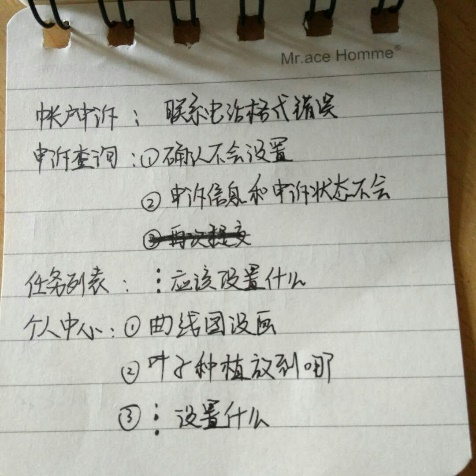 Mr.ace Homme®
帐户申诉：联系电话格式错误
申诉查询：①确认不会设置
②申诉信息和申诉状态不会
③再次提交
任务列表：⋮应该设置什么
个人中心：①曲线图没画
②叶子种植放到哪
③⋮设置什么